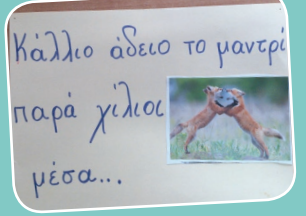 Κάλλιο άδειο το μαντρί
παρά χίλιοι
μέσα...